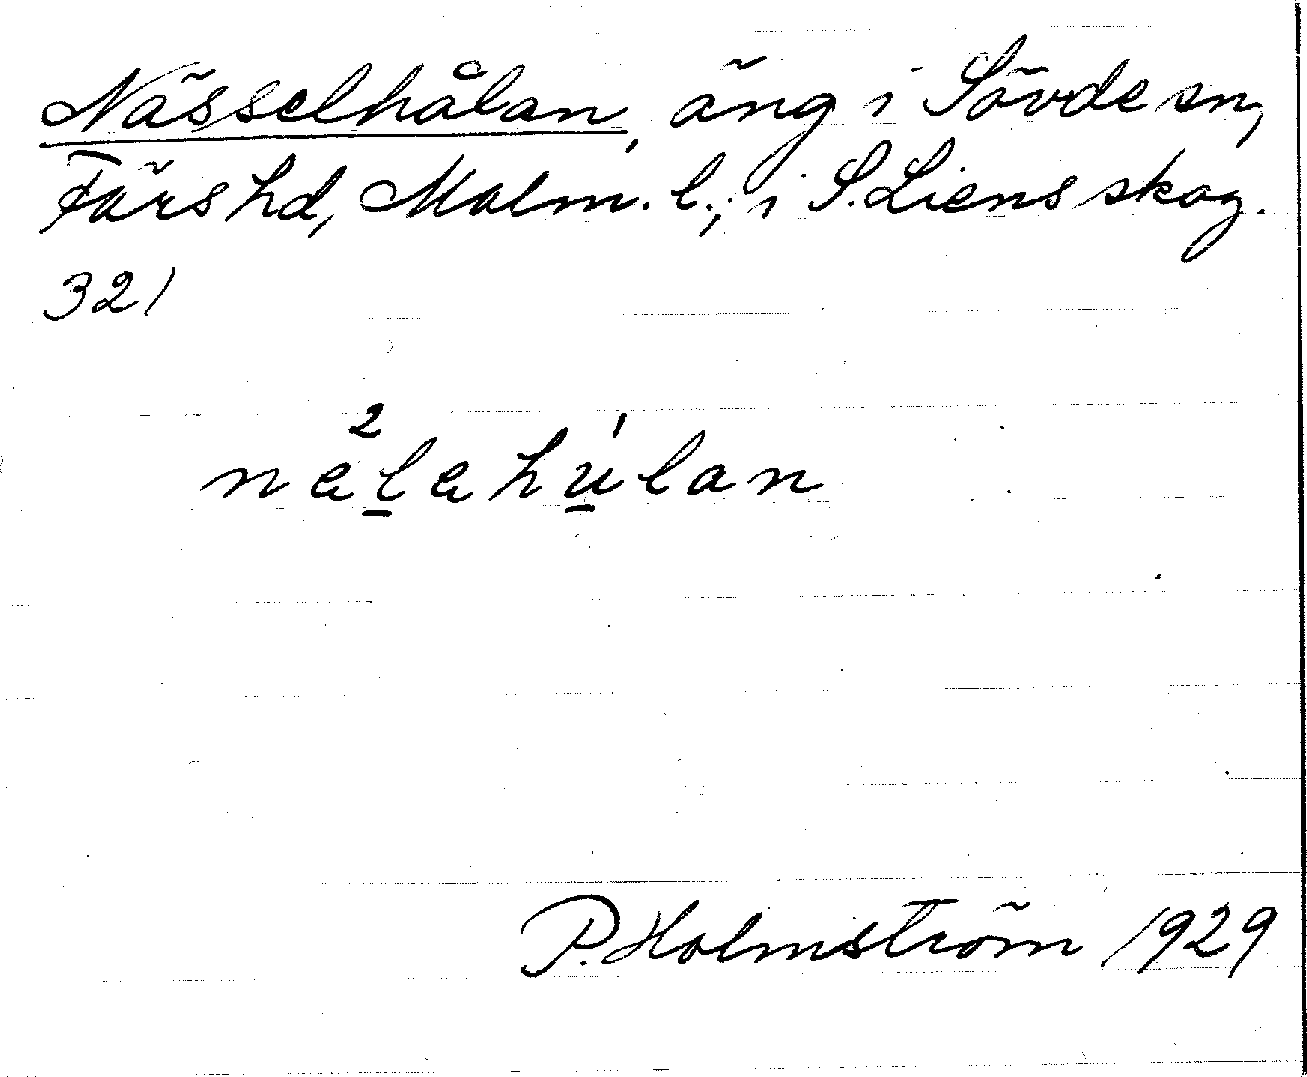 Nässelhålan, äng i Sövde sn,
Färs hd, Malm. l., i S. Liens skog.
321
P. Holmström 1929